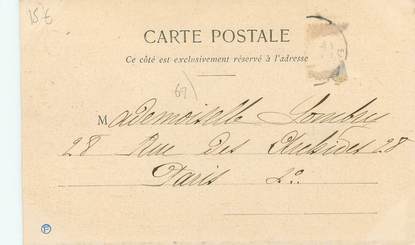 15 €
CARTE POSTALE
Ce côté est exclusivement réservé à l'adresse
69
Mademoiselle
28 Rue des 28
Paris